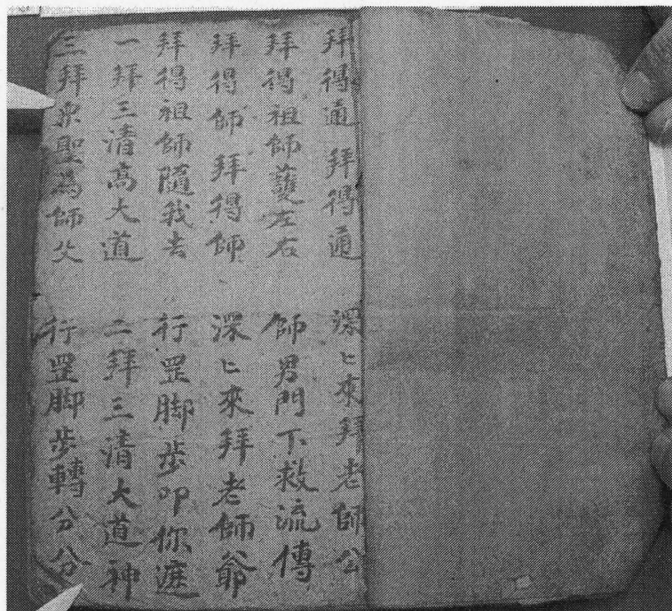 拜得通 拜得通 深〻來拜老師公
拜得祖師護左右 師男門下救流傳
拜得師 拜得師 深〻來拜老師爺
拜得祖師隨我去 行罡脚步叩你遮
一拜三清高大道 二拜三清大道神
三拜眾聖為師父 行罡脚步轉分分